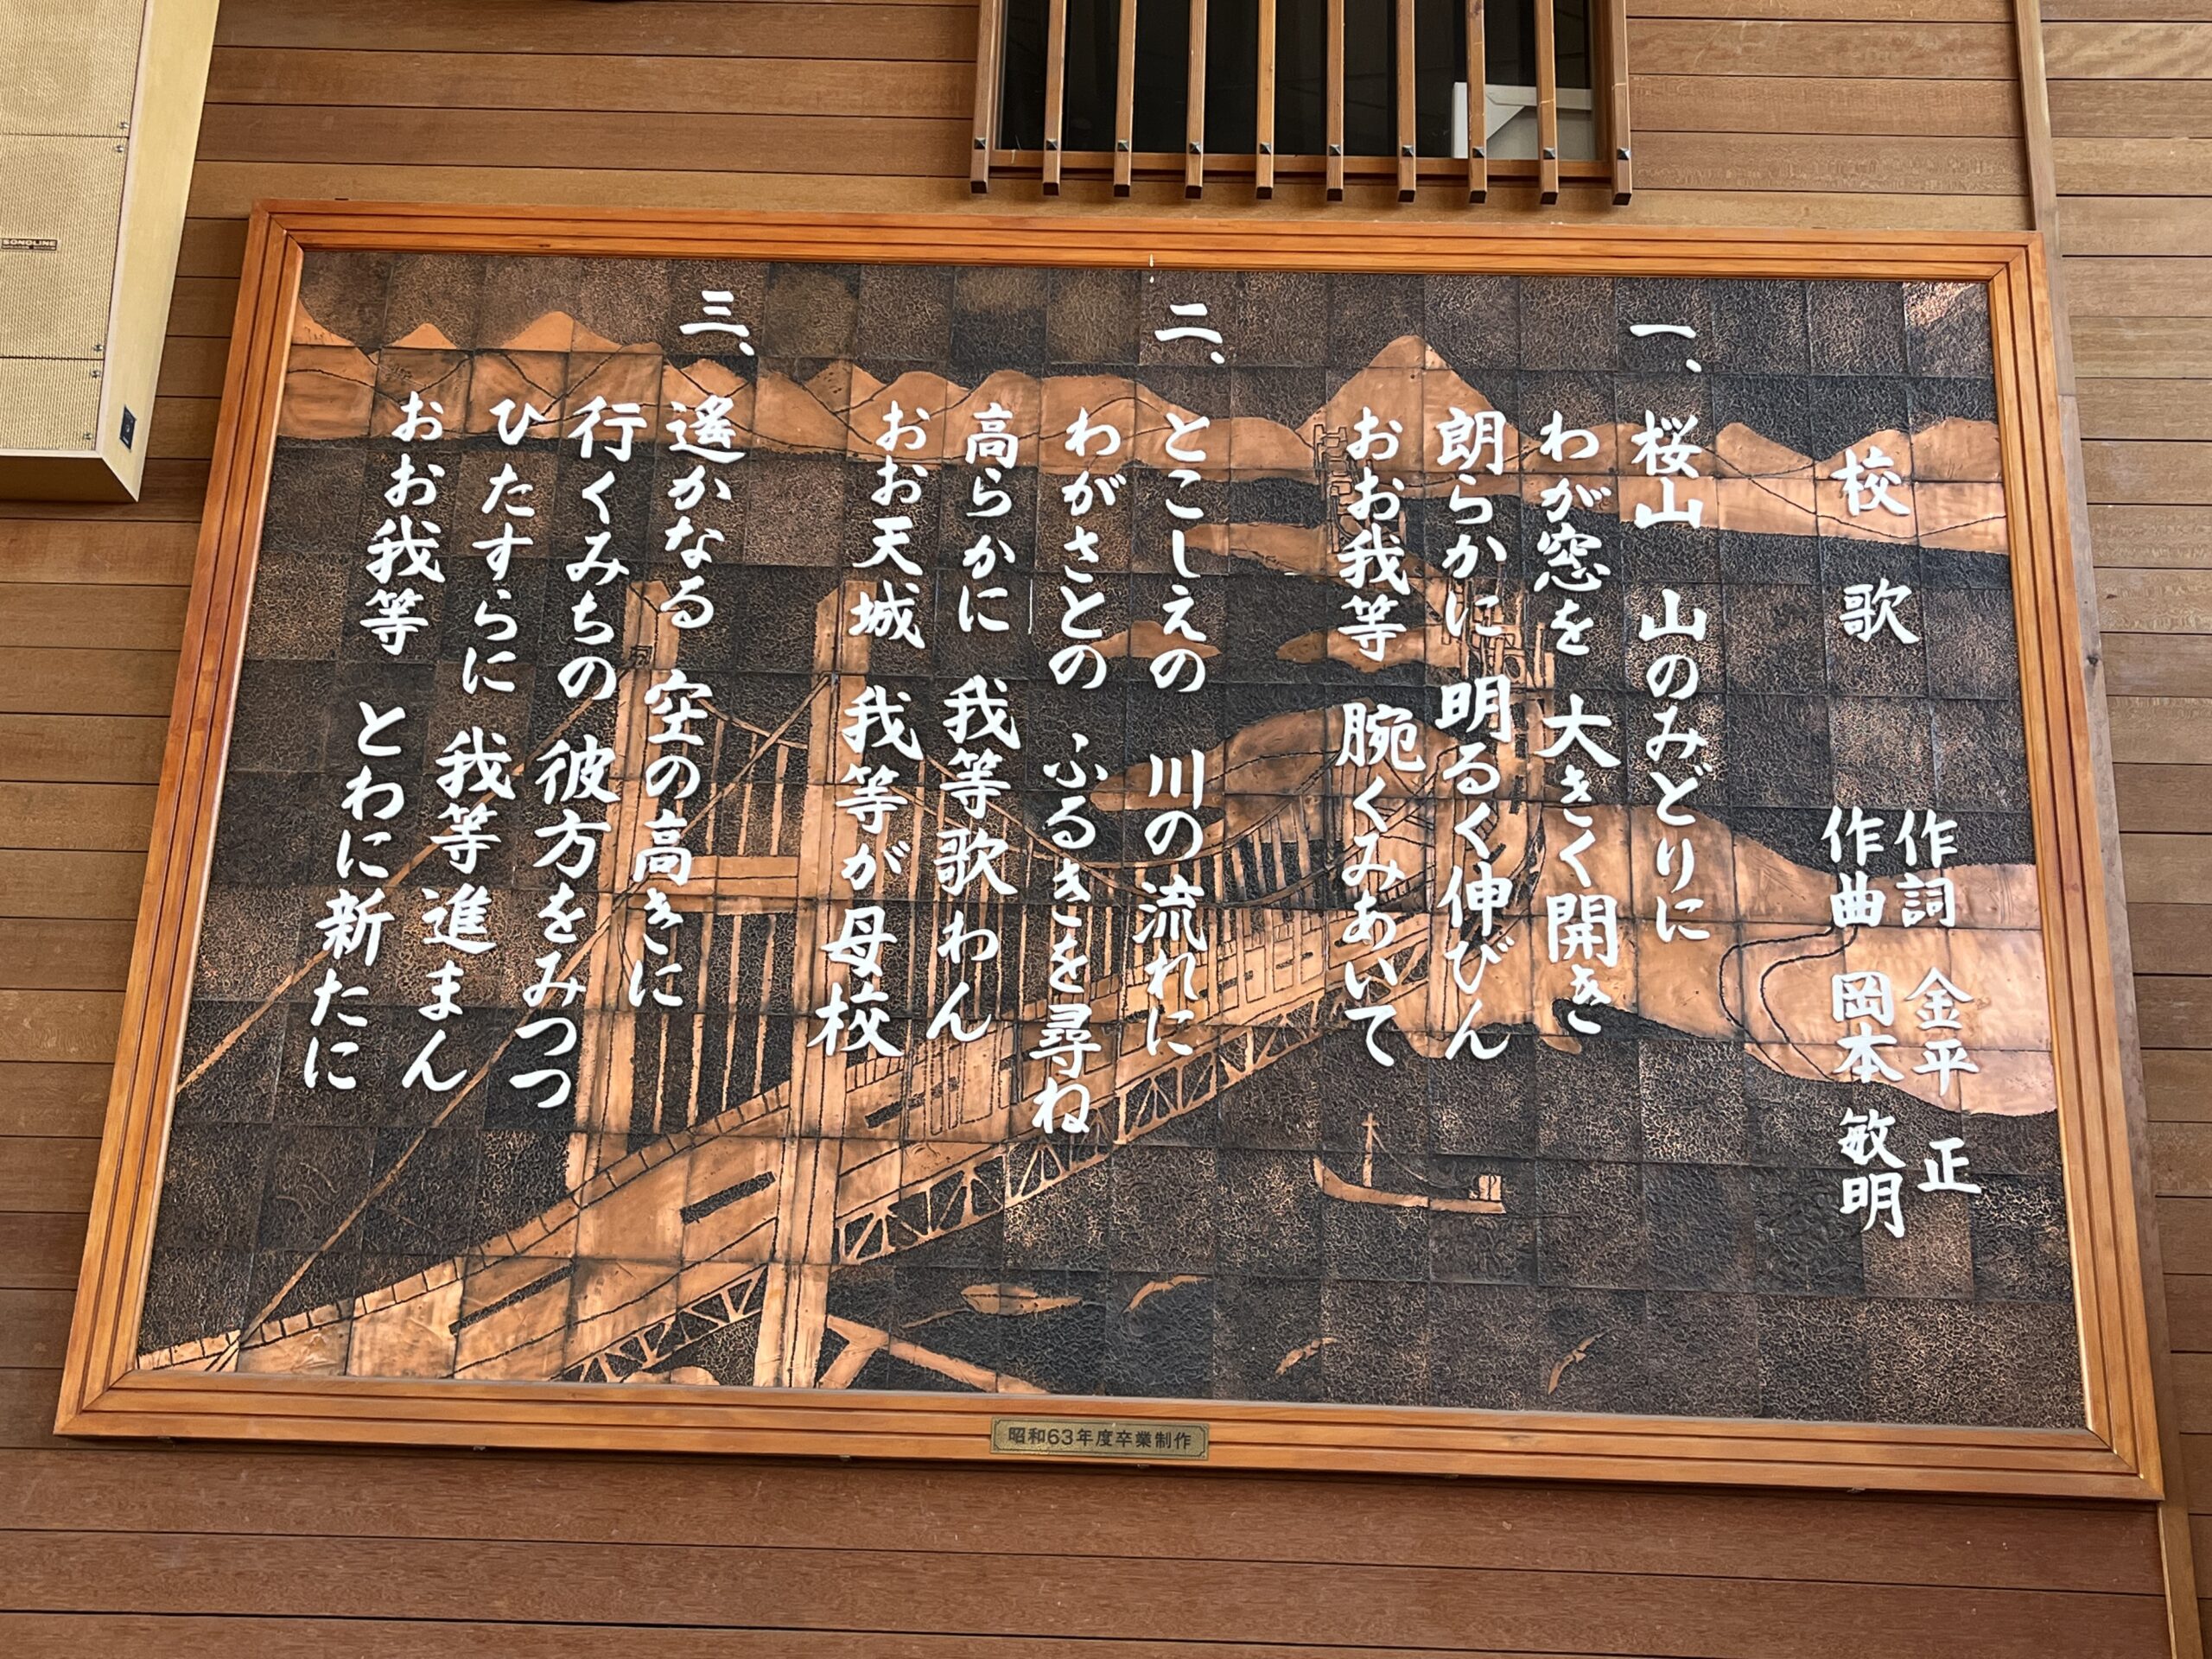 校歌
作詞 金平 正
作曲 岡本 敏明
一、
桜山 山のみどりに
わが窓を 大きく開き
朗らかに 明るく伸びん
おお我等 腕くみあいて
二、
とこしえの 川の流れに
わがさとの ふるきを尋ね
高らかに 我等歌わん
おお天城 我等が母校
三、
遙かなる 空の高きに
行くみちの 彼方をみつつ
ひたすらに 我等進まん
おお我等 とわに新たに
昭和63年度卒業制作
SONOLINE